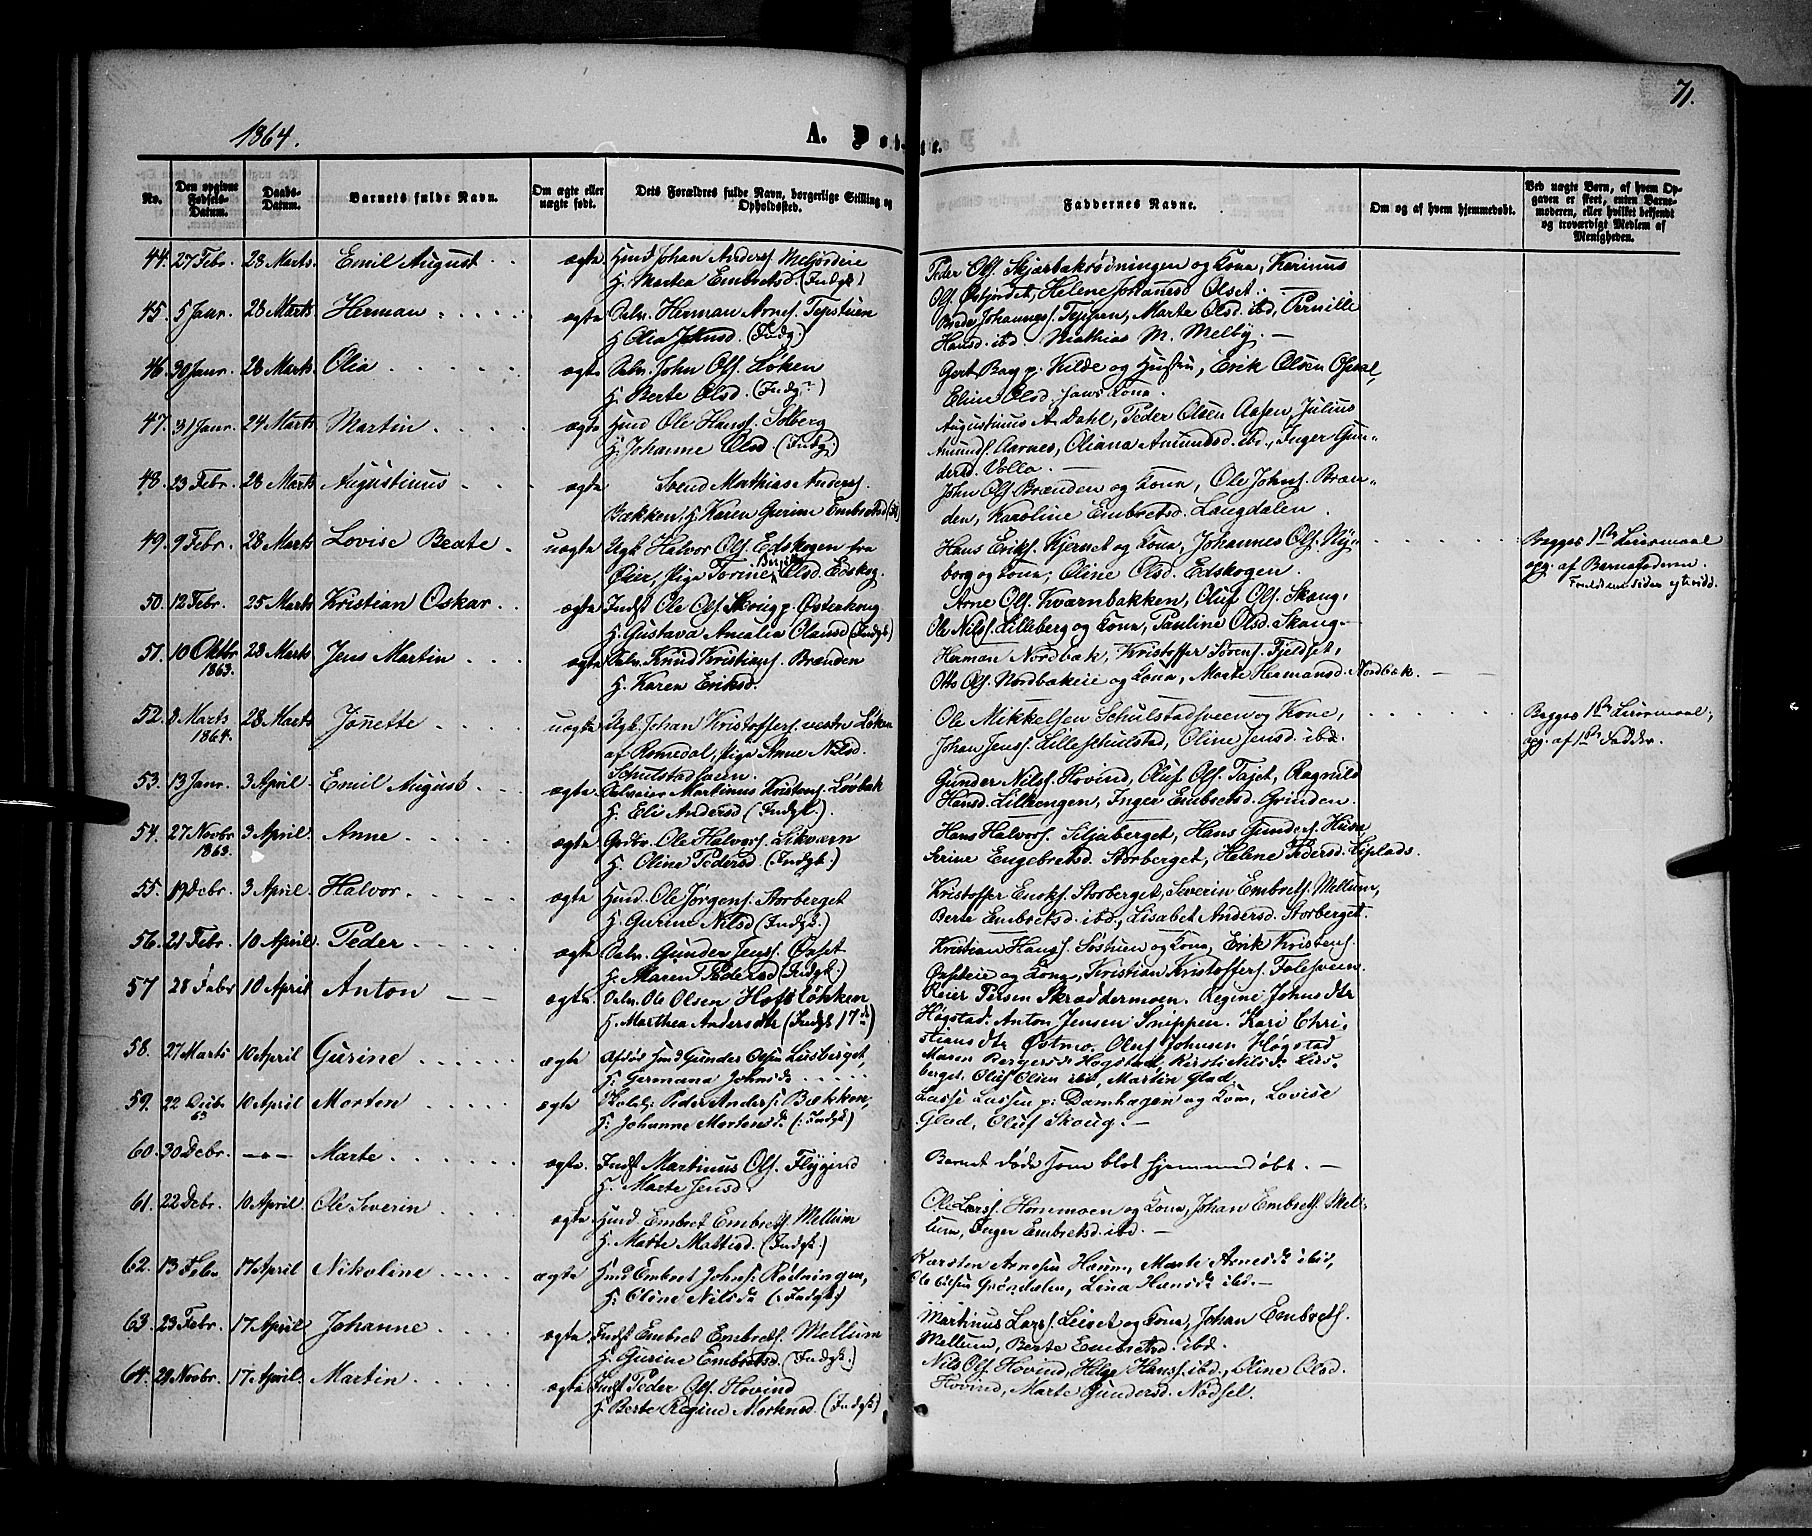 71.
1864.
A. Døbte.
No.
Den opgivne Fødsels-Datum.
Daabs-Datum.
Barnets fulde Navn.
Om ægte eller uægte født.
Dets Forældres fulde Navn, borgerlige Stilling og Opholdssted.
Faddernes Navne.
Om og af hvem hjemmedøbt.
Ved uægte Børn, af hvem Opgaven er skeet, enten Barnemoderen, eller hvilket bekjendt og troværdigt Medlem af Menigheden.
44. 27 Febr. 28 Marts. Emil August ægte Huusm. Johan Anders. Meljordeie
H. Martea Embretsd. (Indgk)
Peder Ols. Skjærbækrødningen og Kona, Karinus
Ols. Østjordet, Helene Johansd Olset.
45. 5 Janr. 28 Marts Herman ægte Selv. Herman Arnes. Tepstuen
H. Olea Johnsd. (Indg.)
Brede Johanness. Teppen, Marte Olsd. ibd, Pernille
Hansd. ibd. Mathias M. Melby.
46. 30 Janr. 28 Marts Olia ægte Selv. John Ols. Løken
H. Berte Olsd. (Indg.)
Gert Bay p. Kilde og Hustru, Erik Olsen Opsal,
Eline Olsd. hans Kona.
47. 31 Janr. 24 Marts Martin ægte Husmd Ole Hanss. Solberg
H. Johanne Olsd (Indg.)
Augustinus A. Dahl, Peder Olsen Aasen, Julius
Amunds. Aarnes, Oliana Amundsd. ibd., Inger Gun-
dersd. Volla.
48. 23 Febr. 28 Marts Augustinus ægte Svend Mathias Anders.
Bækken, H. Karen Gurine Embretsd
John Ols. Brænden og Kona, Ole Johns. Bræn-
den, Karoline Embretsd. Langdalen.
49. 9 Febr. 28 Marts Lovise Beate uægte Ugk. Halvor Ols. Edskogen fra
Øier, Pige Torine Berit Olsd. Edskog.
Hans Eriks. Kjernet og Kona, Johannes Ols. Ny-
borg og Kona, Oline Olsd. Edskogen.
Begges 1ste Leiermaal
opg. af Barnefaderen.
50. 12 Febr. 25 Marts Kristian Oskar ægte Indst Ole Ols. Skoug p. Østerhoug
H. Gustava Amalia Olausd (Indgk)
Arne Ols. Kværnbakken, Oluf Ols. Skoug,
Ole Nilss. Lilleberg og Kona, Pauline Olsd. Skoug.
51. 10 Oktbr 1863. 28 Marts Jens Martin ægte Selv. Knud Kristians. Brænden
H. Karen Eriksd.
Herman Nordbæk, Kristoffer Sørens. Fjeldset,
Otto Ols. Nordbækeie og Kona, Marte Hermansd. Nordbæk.
52. 8 Marts 1864. 28 Marts Jonette uægte Ugk. Johan Kristoffers. vestre Løken
af Romedal, Pige Anne Nilsd.
Schulstadsveen.
Ole Mikkelsen Schulstadsveen og Kone,
Johan Jenss. Lilleschulstad, Oline Jensd. ibd.
Begges 1ste Leiermaal,
opg. af 1ste Fadder.
53. 13 Janr. 3 April Emil August ægte Martinus Kristens. Løvbæk
H. Eli Andersd (Indgk.)
Gunder Nilss. Hovind, Oluf Ols. Tajet, Ragnild
Hansd. Lillengen, Inger Embretsd. Grinden.
54. 27 Novbr 1863. 3 April Anne ægte Grdbr. Ole Halvors. Likværn
H. Oline Pedersd. (Indgk.)
Hans Halvors. Siljuberget, Hans Gunders. Husa
Serine Engebretsd. Storberget, Helene Pedersd. Liplads.
55. 19 Debr. 3 April Halvor ægte Husmd. Ole Jørgens. Storberget
H. Gurine Nilsd (Indgk.)
Kristoffer Enoks. Storberget, Severin Embrets. Mellum,
Berte Embretsd. ibd., Lisabet Andersd. Storberget.
56. 21 Febr. 10 April. Peder ægte Selv. Gunder Jenss. Ørset
H. Maren Pedersd (Indgk.)
Kristian Hanss. Søstuen og Kona, Erik Kristens.
Ørseteie og Kona, Kristian Kristoffers. Folesveen.
57 28 Febr 10 April Anton ægte Selv. Ole Olsen Hofsløkken
H. Marthea Andersdtr (Indgk 17de)
Reier Persen Skræddermoen. Regine Johnsdtr
Høgstad. Anton Jensen Snippen. Kari Chri-
stiansdtr Østmo. Oluf Johnsen Høgstad
58. 27 Marts 10 April Gurine ægte Afdøs Husmd Gunder Olsen Lusberget,
H: Germana Johnsd
Maren Birgersd Høgstad, Kirsti Nilsd: Lus-
berget. Oluf Olsen ibd, Martin Glad.
59. 22 Decbr 63 10 April Morten ægte Peder Anders: Bækken,
H: Johanne Mortensd: (: Indgk)
Lasse Lassen p: Damhagen og Kone, Lovise
Glad, Oluf Skoug.
60. 30 Debr. — Marte ægte. Indst Martinus Ols. Flygind
H. Marte Jensd.
Barnet døde som blot hjemmedøbt.
61. 22 Debr. 10 April Ole Severin ægte Husmd Embret Embrets. Mellum
H. Matte Mattisd. (Indgk.)
Ole Larss. Hommoen og Kona, Johan Embrets. Mel-
lum, Inger Embretsd. ibd.
62. 13 Febr 17 April Nikoline ægte Husmd Embret Johns: Rødningen,
H: Oline Nilsd: (: Indgk:)
Karsten Arnesen Haum, Marte Arnesd: ibid,
Ole Olsen Grøndalen, Lina Hansd: ibd.
63. 23 Febr. 17 April Johanne ægte Indst Embret Embrets. Mellum
H. Gurine Embretsd. (Indgk.)
Martinus Larss. Leiret og Kona, Johan Embrets.
Mellum, Berte Embretsd. ibd.
64. 29 Novbr. 17 April. Martin ægte Indst Peder Ols. Hovind
H. Berte Regine Mortensd. (Indgk)
Nils Ols. Hovind, Helge Hanss. ibd., Oline Olsd.
Hovind, Marte Gundersd. Nodsel.